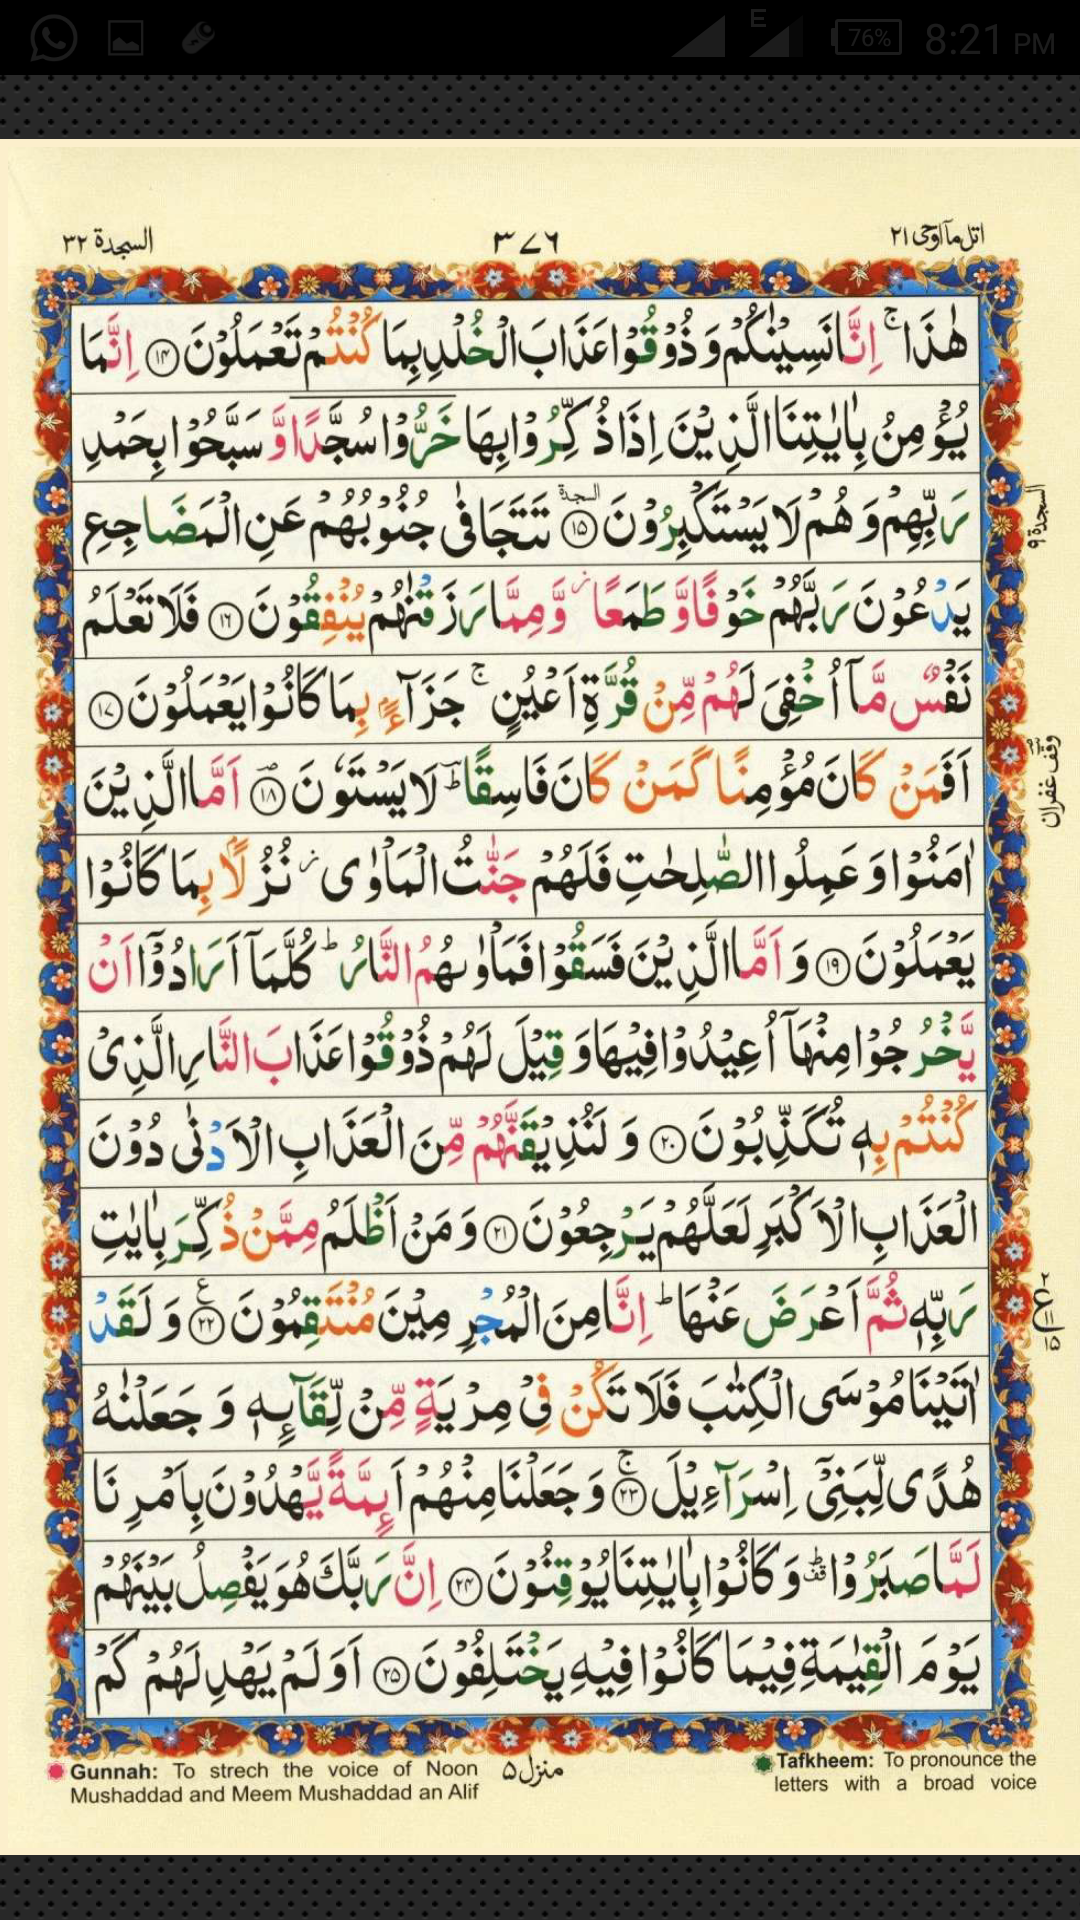 E 76% 8:21 PM
اتل ماۤ اوحی ۲۱ ۳۷۶ السجدة ۳۲
هٰذَا ۚ اِنَّا نَسِیْنٰكُمْ وَ ذُوْقُوْا عَذَابَ الْخُلْدِ بِمَا كُنْتُمْ تَعْمَلُوْنَ ﴿۱۴﴾ اِنَّمَا
یُؤْمِنُ بِاٰیٰتِنَا الَّذِیْنَ اِذَا ذُكِّرُوْا بِهَا خَرُّوْا سُجَّدًا وَّ سَبَّحُوْا بِحَمْدِ
رَبِّهِمْ وَ هُمْ لَا یَسْتَكْبِرُوْنَ ﴿۱۵﴾ السجدة تَتَجَافٰى جُنُوْبُهُمْ عَنِ الْمَضَاجِعِ
السجدة ۹
یَدْعُوْنَ رَبَّهُمْ خَوْفًا وَّ طَمَعًا ؗ وَّ مِمَّا رَزَقْنٰهُمْ یُنْفِقُوْنَ ﴿۱۶﴾ فَلَا تَعْلَمُ
نَفْسٌ مَّاۤ اُخْفِیَ لَهُمْ مِّنْ قُرَّةِ اَعْیُنٍ ۚ جَزَآءًۢ بِمَا كَانُوْا یَعْمَلُوْنَ ﴿۱۷﴾
اَفَمَنْ كَانَ مُؤْمِنًا كَمَنْ كَانَ فَاسِقًا ؔؕ لَا یَسْتَوٗنَ ﴿۱۸﴾ اَمَّا الَّذِیْنَ
وقف غفران
اٰمَنُوْا وَ عَمِلُوا الصّٰلِحٰتِ فَلَهُمْ جَنّٰتُ الْمَاْوٰى ؗ نُزُلًۢا بِمَا كَانُوْا
یَعْمَلُوْنَ ﴿۱۹﴾ وَ اَمَّا الَّذِیْنَ فَسَقُوْا فَمَاْوٰىهُمُ النَّارُ ؕ كُلَّمَاۤ اَرَادُوْۤا اَنْ
یَّخْرُجُوْا مِنْهَاۤ اُعِیْدُوْا فِیْهَا وَ قِیْلَ لَهُمْ ذُوْقُوْا عَذَابَ النَّارِ الَّذِیْ
كُنْتُمْ بِهٖ تُكَذِّبُوْنَ ﴿۲۰﴾ وَ لَنُذِیْقَنَّهُمْ مِّنَ الْعَذَابِ الْاَدْنٰى دُوْنَ
الْعَذَابِ الْاَكْبَرِ لَعَلَّهُمْ یَرْجِعُوْنَ ﴿۲۱﴾ وَ مَنْ اَظْلَمُ مِمَّنْ ذُكِّرَ بِاٰیٰتِ
رَبِّهٖ ثُمَّ اَعْرَضَ عَنْهَا ؕ اِنَّا مِنَ الْمُجْرِمِیْنَ مُنْتَقِمُوْنَ ﴿۲۲﴾ ع وَ لَقَدْ
۲ ع ۱۱ ۱۵
اٰتَیْنَا مُوْسَى الْكِتٰبَ فَلَا تَكُنْ فِیْ مِرْیَةٍ مِّنْ لِّقَآىِٕهٖ وَ جَعَلْنٰهُ
هُدًى لِّبَنِیْۤ اِسْرَآءِیْلَ ﴿۲۳﴾ۚ وَ جَعَلْنَا مِنْهُمْ اَىِٕمَّةً یَّهْدُوْنَ بِاَمْرِنَا
لَمَّا صَبَرُوْا ؕ۫ وَ كَانُوْا بِاٰیٰتِنَا یُوْقِنُوْنَ ﴿۲۴﴾ اِنَّ رَبَّكَ هُوَ یَفْصِلُ بَیْنَهُمْ
یَوْمَ الْقِیٰمَةِ فِیْمَا كَانُوْا فِیْهِ یَخْتَلِفُوْنَ ﴿۲۵﴾ اَوَ لَمْ یَهْدِ لَهُمْ كَمْ
Gunnah: To strech the voice of Noon
Mushaddad and Meem Mushaddad an Alif
منزل ۵
Tafkheem: To pronounce the
letters with a broad voice